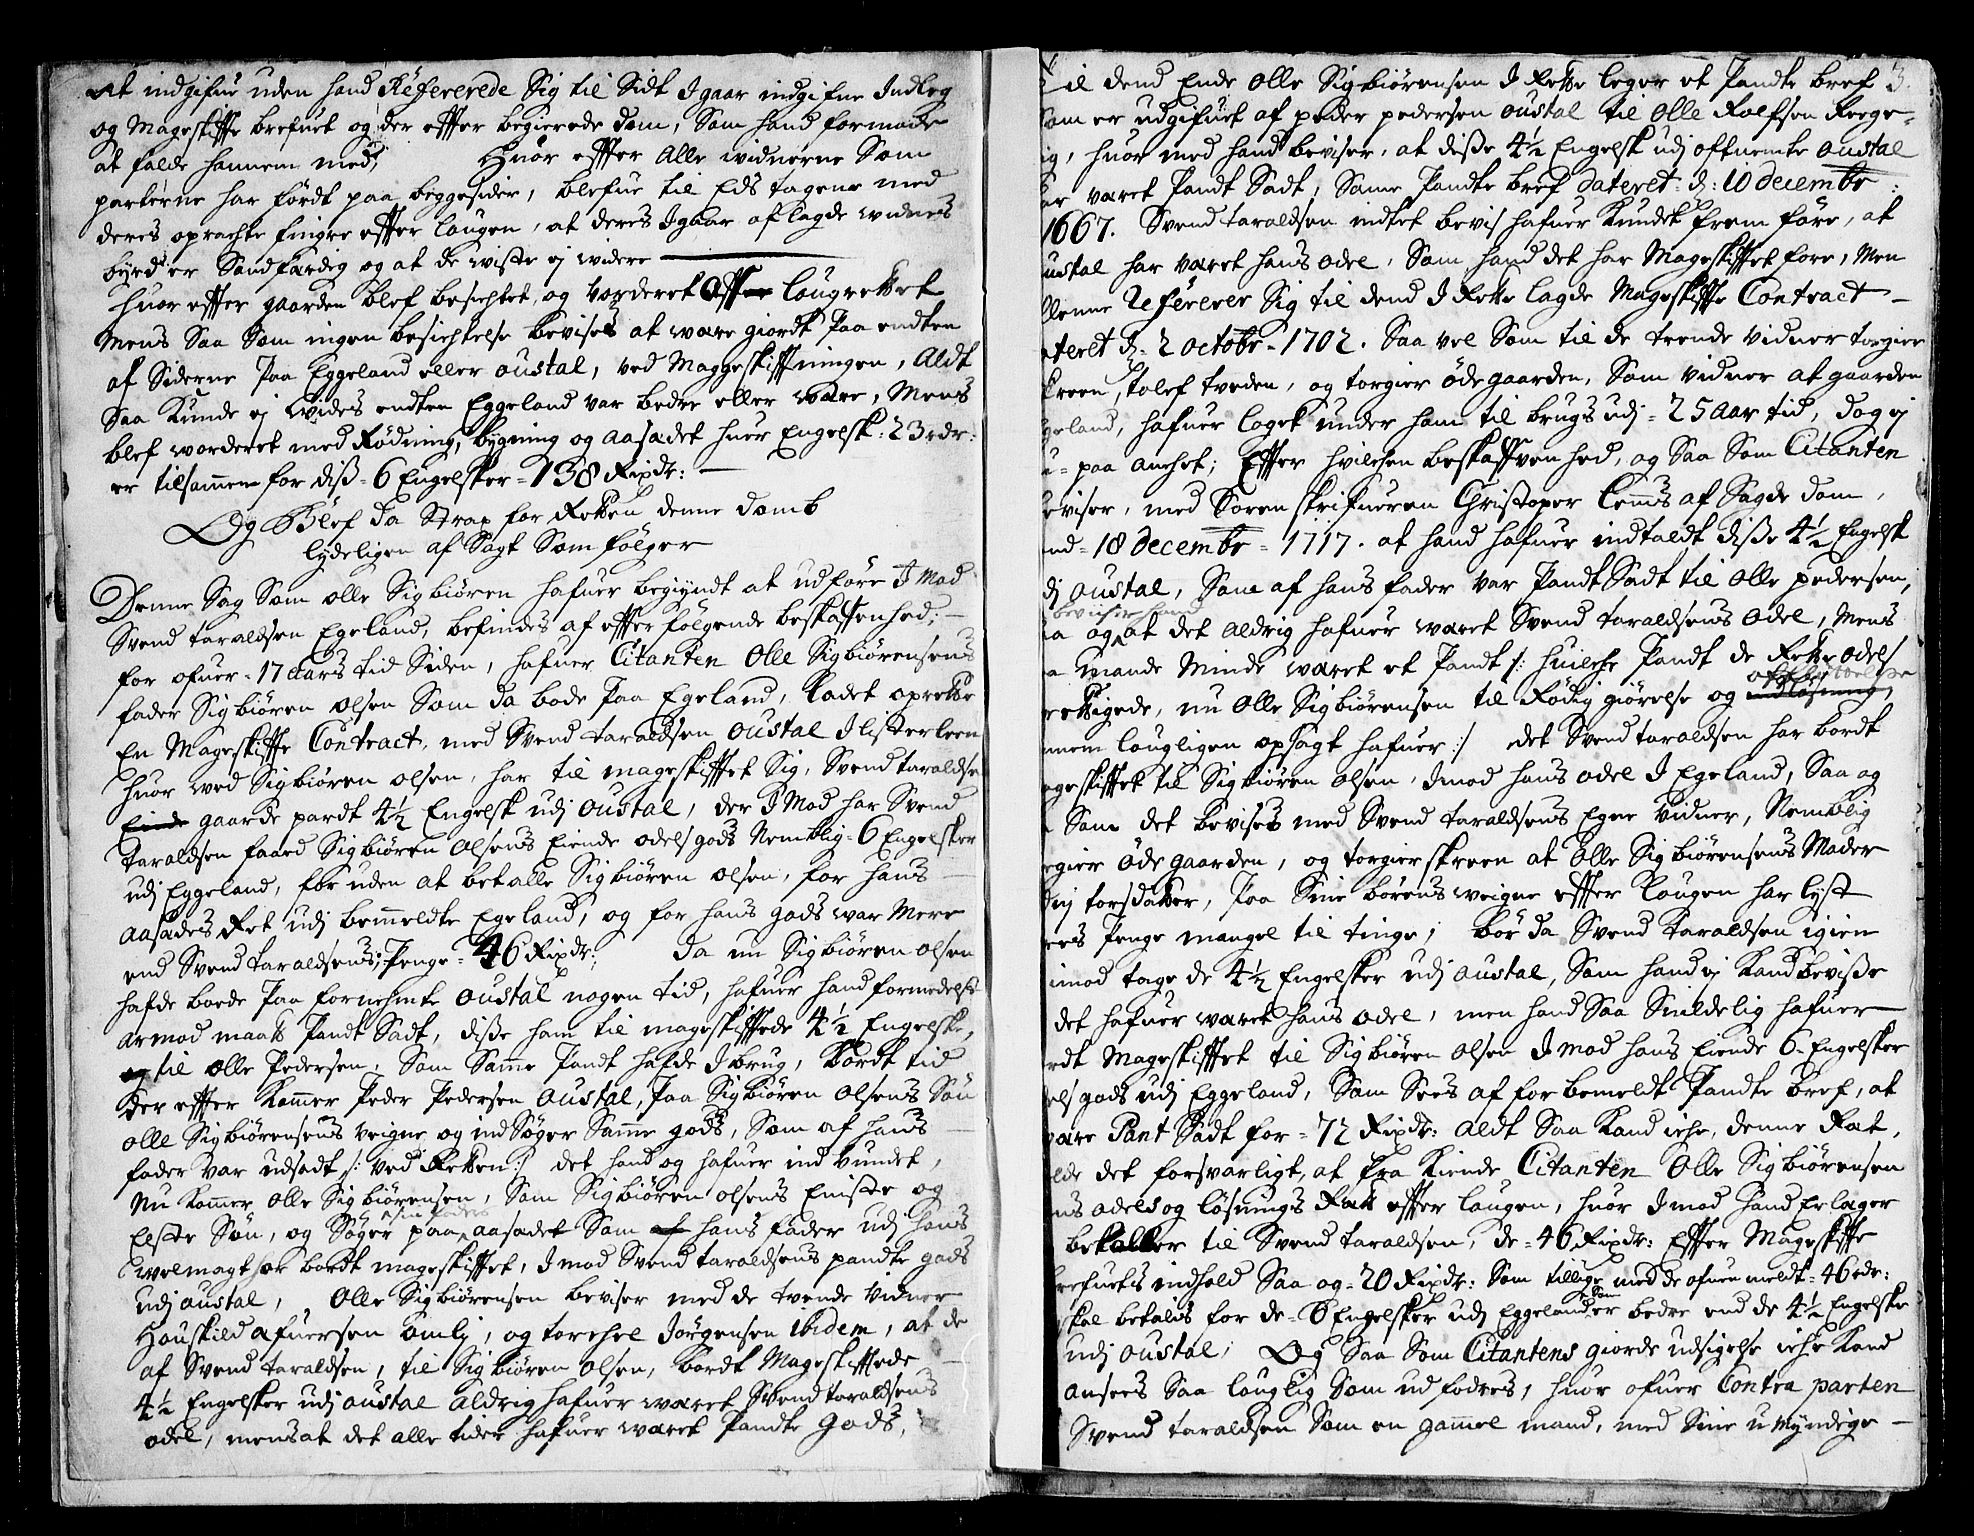 At indgifue uden hand Refererede Sig til Sidt Igaar indgifne Indleg
og Mageskiffte brefuet og der effter begierede dom, Som hand formode
at falde hannem med, Huor effter Alle widnerne Som
parterne har fördt paa beggesider, blefue til Eds tagene med
deres oprachte fingre effter lougen, at deres Igaar aflagde widnes
byrd er Sandfærdig og at de wiste ej widere
Huor effter gaarden blef besichtet og Vorderet Aff lougrettet
Mens Saa Som ingen besichtelse bevises at ware giordt Paa endten
af Siderne Paa Eggeland eller oustal, ved Maggeskiffningen, Aldt
Saa Kunde ej wides endten Eggeland var bedre eller wære, Mens
blef worderet med Rödning, bygning og aasædet huer Engelsk: 23 rdr:
er tilsammen for diß = 6 Engelsker = 138 Rixdr:
Og Blef da Strax for Retten denne domb
lydeligen af Sagt Som fölger
Denne Sag Som olle Sigbiören hafuer begyndt at udföre I Mod
Svend taraldsen Egeland, befindes af effter fölgende beskaffenhed;
for ofuer = 17 Aars tid Siden, hafuer Citanten Olle Sigbiörensens
fader Sigbiören olsen Som da bode Paa Egeland, Ladet oprette
En Mageskiffte Contract, med Svend taraldsen oustal I listerleen
Huor ved Sigbiören olsen, har til mageskifftet Sig, Svend taraldsen
Eiende gaarde pardt 4½ Engelsk udj Oustal, der I Mod har Svend
Taraldsen faaed Sigbiören Olsens Eiende odels gods Nemblig = 6 Engelsker
udj Eggeland, for uden at betalle Sigbiören olsen, for hans
Aasædes Ret udj bemeldte Egeland, og for hans gods war Mere
end Svend taraldsens; Penge = 46 Rixdr; Da nu Sigbiören olsen
hafde boede Paa fornehmte Oustal nogen tid, hafuer hand formedelst
Armod maat Pandt Sadt, diße ham til mageskiffede 4½ Engelske,
og til olle Pedersen, Som Samme Pandt hafde I brug, Kordt tid
der effter Kommer Peder Pedersen Oustal, Paa Sigbiören Olsens Sön
olle Sigbiörensens Veigne og ind Söger Samme gods, Som af hans
fader Var udsadt /: ved Retten :/ det hand og hafuer ind Vundet,
Nu Kommer Olle Sigbiörensen, Som Sigbiören olsens Eniste og
Elste Sön, og Söger paa sin faders aasædet Som af hans fader udj hans
welmagt har bordt mageskifftet, I mod Svend taraldsens pandte gods
udj oustal, Olle Sigbiörensen beviser med de tvende Vidner
Houskild Afuersen omlj, og torchel Jörgensen ibidem, at de
af Svend taraldsen, til Sigbiören olsen, bordt Mageskiffede
4½ Engelsker udj oustal aldrig hafuer waret Svend taraldsens
odel, mens at det alle tider hafuer waret Pandte gods,
3.
til dend Ende Olle Sigbiörensen I Rette leger et Pandte bref
Som er udgifuet af peder pedersen oustal til Olle Rolfsen Reege=
ig, huor med hand beviser, at diße 4½ Engelsk udj offtnemte oustal
ar varet Pandt Sadt, Same Pandte bref Dateret: d: 10 decembr:
1667. Svend taraldsen indtet bevis hafuer Kundet frem före, at
oustal har varet hans odel, Som hand det har Mageskifftet fore, Men
llenne Referer Sig til dend I Rette lagde Mageskiffte Contract
ateret d: 2 octobr. 1702. Saa vel Som til de trende Vidner torgier
kreen, tolef tveden, og torgier öde gaarden, Som vidner at gaarden
geland, hafuer laget under ham til brugs udj = 25 Aar tid, dog ej
u= paa anchet; Effter hvilchen beskaffvenhed, og Saa Som Citanten
eviser, med Soren skrifueren Christoper Lemis af Sagde dom,
nd = 18 decembr = 1717. at hand hafuer indtaldt diße 4½ Engelsk
dj oustal, Som af hans fader var Pandt Sadt til Olle pedersen,
a og bevißer hand at det aldrig hafuer waret Svend taraldsens odel, Mens
a Mande Minde waret et Pandt /: huilche Pandt de Rette odels
rettigede, nu Olle Sigbiörensen til Rödig giörelse og indlösning
nnem lougligen opsagt hafuer :/ det Svend taraldsen har bordt
ageskifftet til Sigbiören olsen, Imod hans odel I Egeland, Saa og
Som det bevises med Svend taraldsens Egne Vidner, Nemblig
egier öde gaarden, og torgier skreen at olle Sigbiörensens Moder
ij torsdatter, Paa Sine börens weigne effter lougen har lyst
res Penge mangel til tinge; bör da Svend taraldsen igien
imod tage de 4½ Engelsker udj oustal, Som hand ej Kand beviße
det hafuer waret hans odel, men hand Saa Snildelig hafuer
rdt Mageskifftet til Sigbiören olsen I mod hans Eiende 6- Engelsker
els gods udj Eggeland, Som Sees af for bemeldt Pandte bref, at
vare Pant Sadt for = 72 Rixdr: Aldt Saa Kand iche, denne Ret,
lde det forsvarligt, at fra Kiende Citanten Olle Sigbiörensen
ns odels og lösnings Rett effter lougen, huor I mod hand Erlæger
betaller til Svend taraldsen, de = 46 Rixdr: Effter Mageskiffte
refuetis indhold Saa og = 20 Rixdr: Som tillige med de ofuen meldt = 46 rdr:
skal betales for de = 6 Engelsker udj Eggeland som er bedre end de 4½ Engelske
udj oustal; Og Saa Som Citantens giorde udsigelse iche Kand
ansees Saa louglig Som udfodres, huor ofuer Contra parten
Svend taraldsen Som en gammel mand, med Sine u Myndige